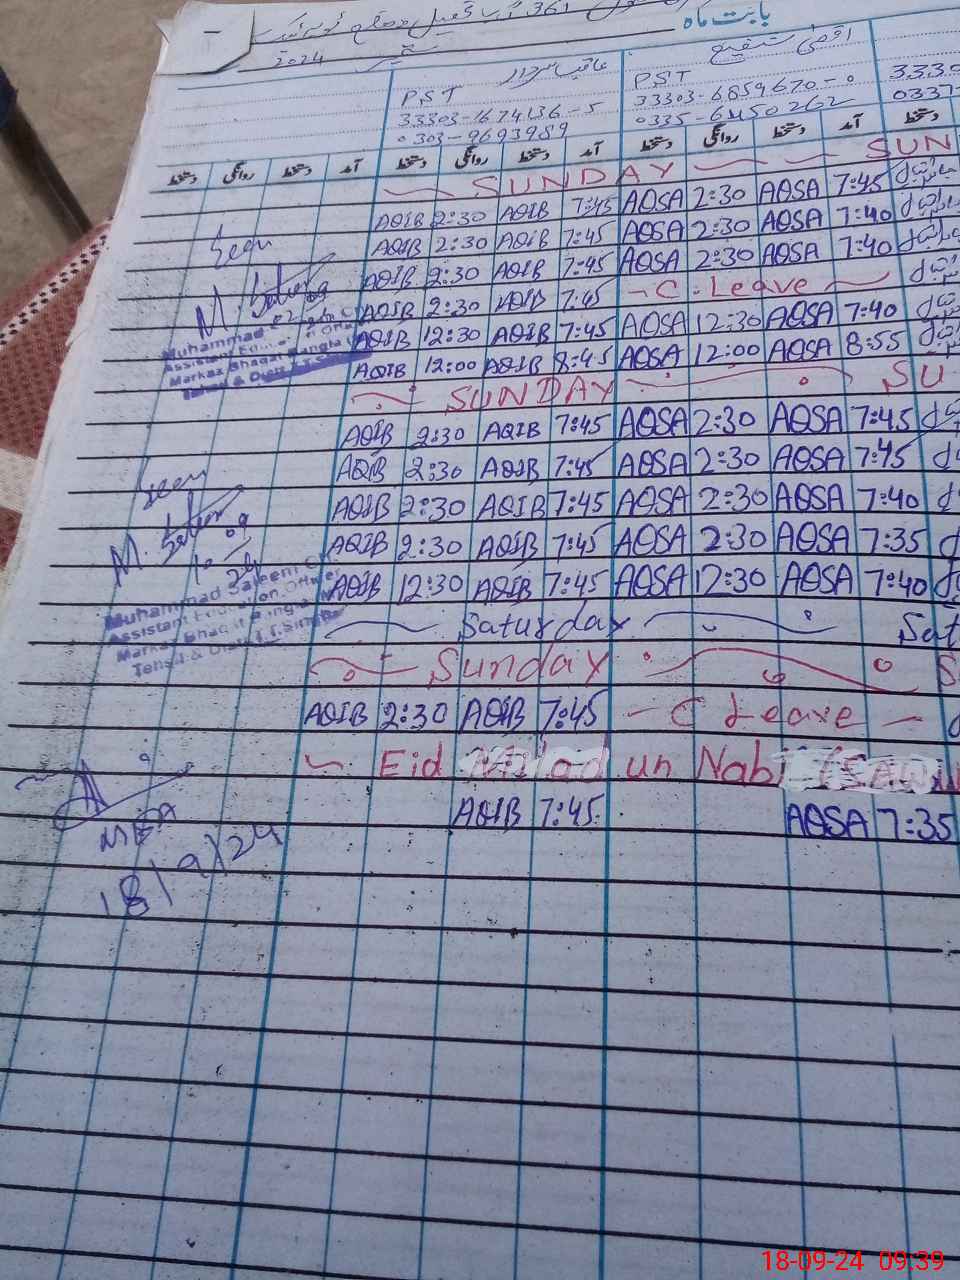 بابت ماہ
361
2024
عاقب سردار اقصیٰ شفیع
PST PST
33303-1674136-5 33303-6859670-0 3330
0303-9693989 0335-6450262 0337
دستخط روانگی دستخط آمد دستخط روانگی دستخط آمد دستخط روانگی دستخط آمد دستخط
SUNDAY SUN
AQIB 2:30 AQIB 7:45 AQSA 2:30 AQSA 7:45
AQIB 2:30 AQIB 7:45 AQSA 2:30 AQSA 7:40
AQIB 2:30 AQIB 7:45 AQSA 2:30 AQSA 7:40
AQIB 2:30 AQIB 7:45 C. Leave
AQIB 12:30 AQIB 7:45 AQSA 12:30 AQSA 7:40
AQIB 12:00 AQIB 8:45 AQSA 12:00 AQSA 8:55
SUNDAY SU
AQIB 2:30 AQIB 7:45 AQSA 2:30 AQSA 7:45
AQIB 2:30 AQIB 7:45 AQSA 2:30 AQSA 7:45
AQIB 2:30 AQIB 7:45 AQSA 2:30 AQSA 7:40
AQIB 2:30 AQIB 7:45 AQSA 2:30 AQSA 7:35
AQIB 12:30 AQIB 7:45 AQSA 12:30 AQSA 7:40
Saturday Sat
Sunday S
AQIB 2:30 AQIB 7:45 C Leave
Eid Milad un Nabi (SAW)
AQIB 7:45 AQSA 7:35
Seen
M. Saleem
Muhammad
Assistant
Markaz Bhagat Bangla
Seen
M. Saleem
10/09
24
Muhammad Saleem
Assistant Education Officer
Markaz Bhagat Bangla
Tehsil & Distt. T.T.Singh
MEA
18/9/24
18-09-24 09:39